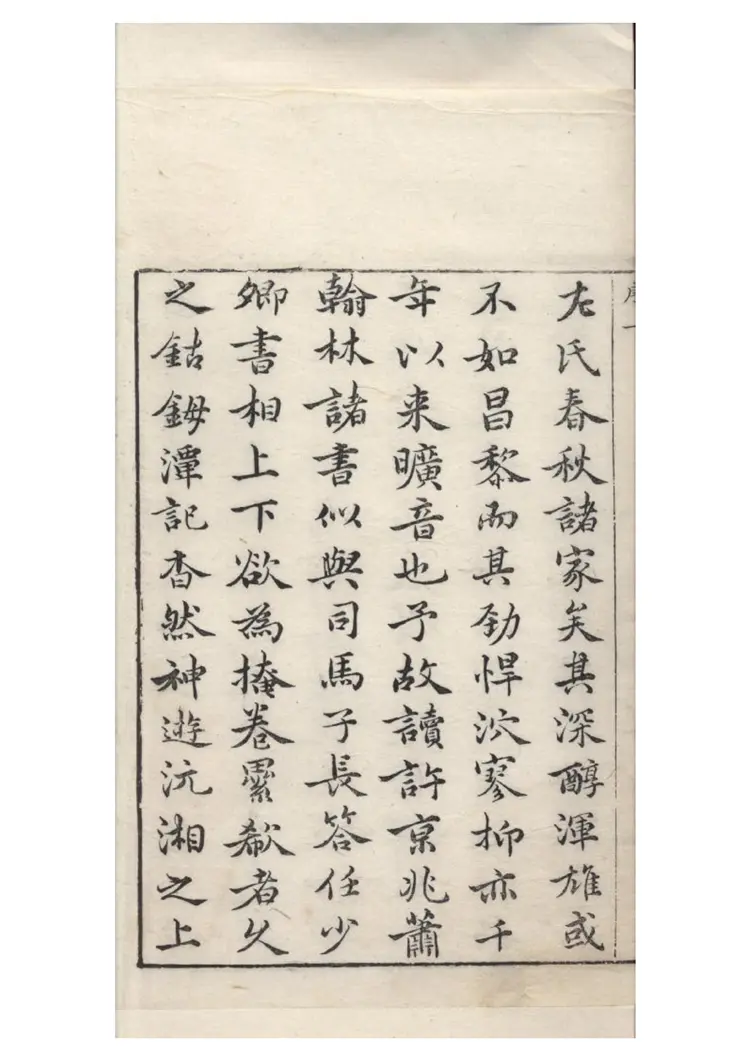 左氏春秋諸家矣其深醇渾雄或
不如昌黎而其勁悍泬寥抑亦千
年以来曠音也予故讀許京兆蕭
翰林諸書似與司馬子長答任少
卿書相上下欲為掩卷纍欷者久
之鈷鉧潭記杳然神遊沅湘之上